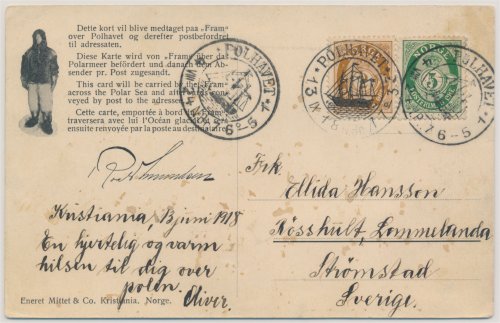 Dette kort vil blive medtaget paa „Fram“
over Polhavet og derefter postbefordret
til adressaten.
Diese Karte wird von „Fram“ über das
Polarmeer befördert und danach den Ab-
sender pr. Post zugesandt.
This card will be carried by the „Fram“
across the Polar Sea and afterwards con-
veyed by post to the adressee.
Cette carte, emportée à bord du „Fram“
traversera avec lui l'Océan glacial
ensuite renvoyée par la poste au destinataire.
POLHAVET
POLHAVET
13 IX 18
POLHAVET
NORGE
Kristiania, 13 juni 1918
En hjertelig og varm
hilsen til dig over
polen.
Eliver.
Frk
Ellida Hansson
Rösshult, Lommelanda
Strömstad
Sverige.
Eneret Mittet & Co. Kristiania. Norge.